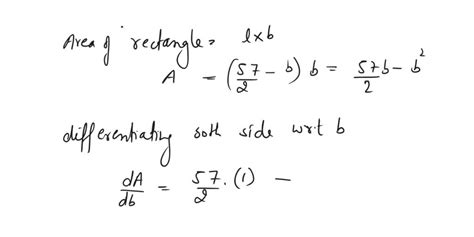 Area of rectangle = l×b
A = (57/2 - b) b = 57b/2 - b²
differentiating both side wrt b
dA/db = 57/2 . (1) -